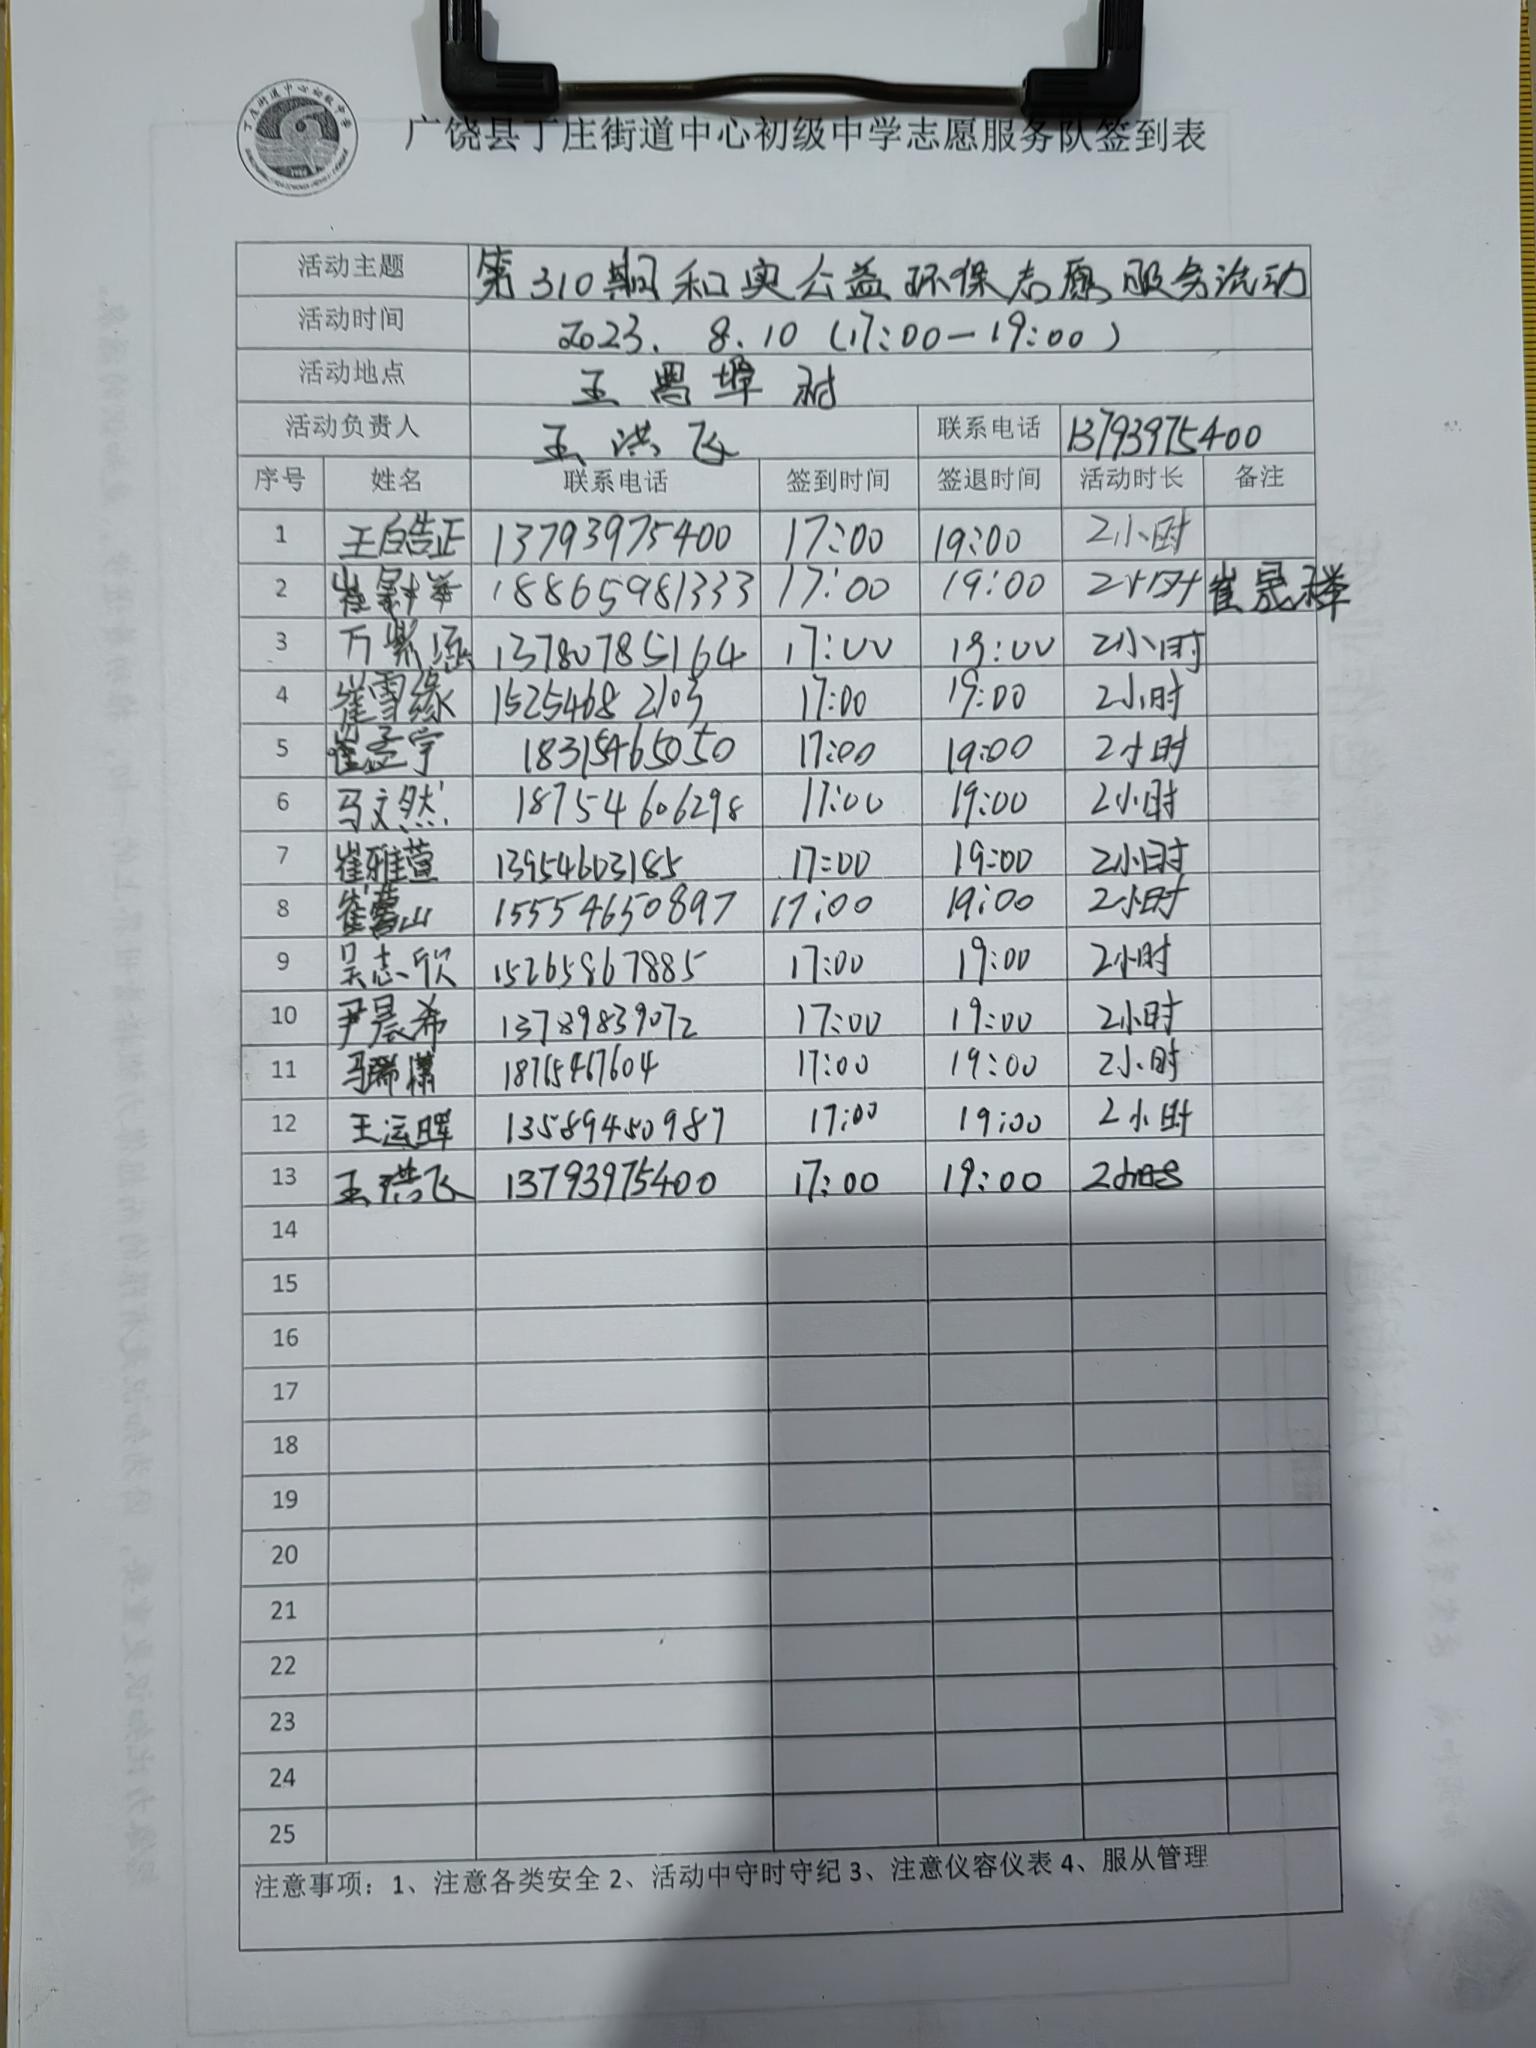 广饶县丁庄街道中心初级中学志愿服务队签到表
活动主题 第310期和实公益环保志愿服务活动
活动时间 2023. 8.10 (17:00—19:00)
活动地点 王 埠 村
活动负责人 王洪飞 联系电话 13793975400
序号 姓名 联系电话 签到时间 签退时间 活动时长 备注
1 王皓正 13793975400 17:00 19:00 2小时
2 崔 18865981333 17:00 19:00 2小时 崔晟
3 万紫涵 13780785164 17:00 19:00 2小时
4 崔雪缘 15254682103 17:00 19:00 2小时
5 崔孟宇 18315465050 17:00 19:00 2小时
6 马文然 18754606298 17:00 19:00 2小时
7 崔雅萱 13954603185 17:00 19:00 2小时
8 崔 山 15554650897 17:00 19:00 2小时
9 吴志欣 15265867885 17:00 19:00 2小时
10 尹晨希 13789839072 17:00 19:00 2小时
11 马瑞潇 18765467604 17:00 19:00 2小时
12 王运晖 13589450987 17:00 19:00 2小时
13 王洪飞 13793975400 17:00 19:00 2小时
14
15
16
17
18
19
20
21
22
23
24
25
注意事项：1、注意各类安全 2、活动中守时守纪 3、注意仪容仪表 4、服从管理